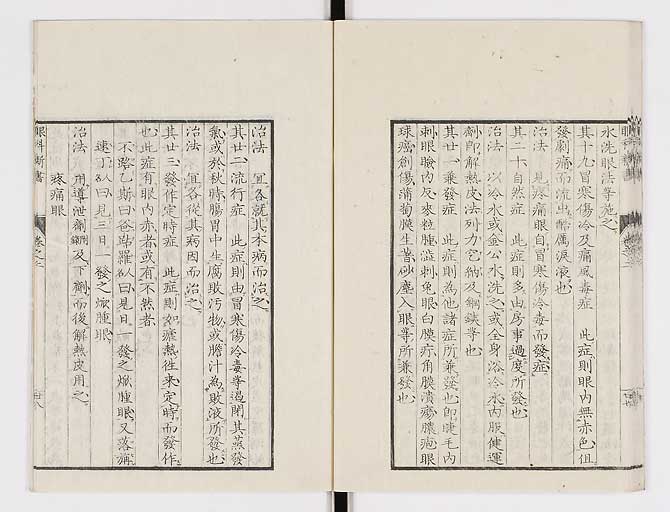 水洗眼法等施之
其十九冒寒傷冷及痛風毒症 此症則眼内無赤色但
發劇痛而流出酷厲淚液也
治法 見疼痛眼自冒寒傷冷毒而發症
其二十自然症 此症則多由房事過度所發也
治法 以冷水或金公水洗之或全身浴冷水内服健運
劑即解熱皮法列乃及鋼鐵等也
其廿一兼發症 此症則為他諸症所兼發也即睫毛内
刺眼瞼内反麥粒腫焮刺兎眼白膜疔角膜潰瘍膿疱眼
球癌創傷蒲萄膜生昔砂塵入眼等所兼發也
治法 宜各就其本病而治之
其廿二流行症 此症則由冒寒傷冷毒等過閉其蒸發
氣或於秋時腸胃中生腐敗汚物或膽汁為敗液所發也
治法 宜各從其病因而治之
其廿三發作定時症 此症則如瘧熱往來定時而發作
也此症有眼内赤者或有不然者
不路乙斯曰會跕羅以曰見日一發之焮腫眼又落瀰
速丁以曰見三日一發之焮腫眼
治法 用導泄劑及下劑而後解熱皮用之
疼痛眼
眼科新書 卷之二 廿八